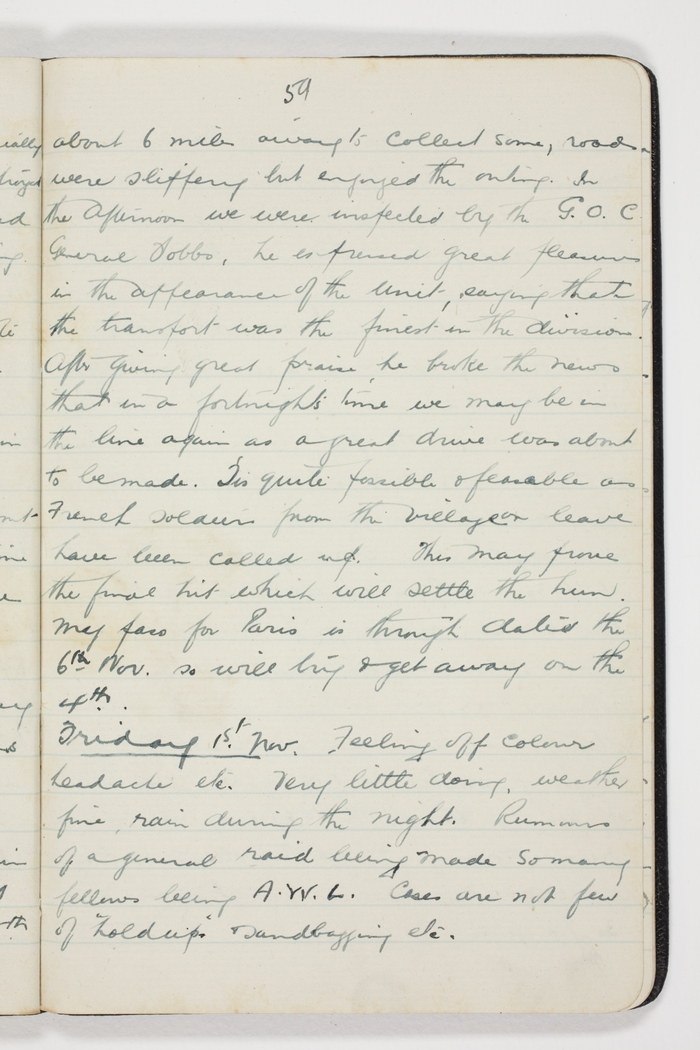 59
about 6 miles away to collect some, roads
were slippery but enjoyed the outing. In
the Afternoon we were inspected by the G.O.C
General Dobbs, he expressed great pleasure
in the appearance of the Unit, saying that
the transport was the finest in the division.
After giving great praise he broke the news
that in a fortnight's time we may be in
the line again as a great drive was about
to be made. Tis quite possible & feasable as
French soldiers from the village on leave
have been called up. This may prove
the final hit which will settle the hun.
My pass for Paris is through dated the
6th Nov. so will try & get away on the
4th.
Friday 1st. Nov. Feeling off colour
headache etc. Very little doing, weather
fine, rain during the night. Rumours
of a general raid being made so many
fellows being A.W.L. Cases are not few
of "hold ups" & sandbagging etc.